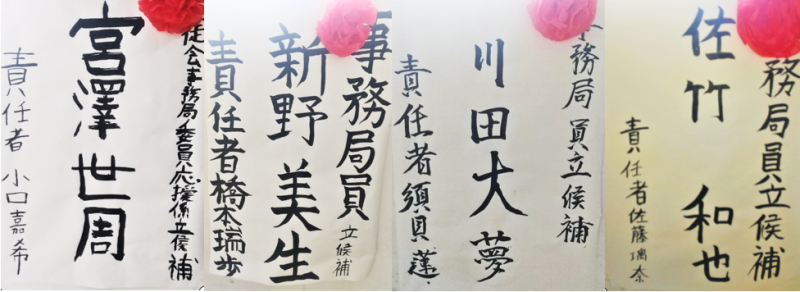 徒会事務局委員応援係立候補
宮澤世周
責任者 小口嘉希
事務局員立候補
新野美生
責任者橋本瑞歩
事務局員立候補
川田大夢
責任者須貝蓮
務局員立候補
佐竹和也
責任者佐藤璃奈